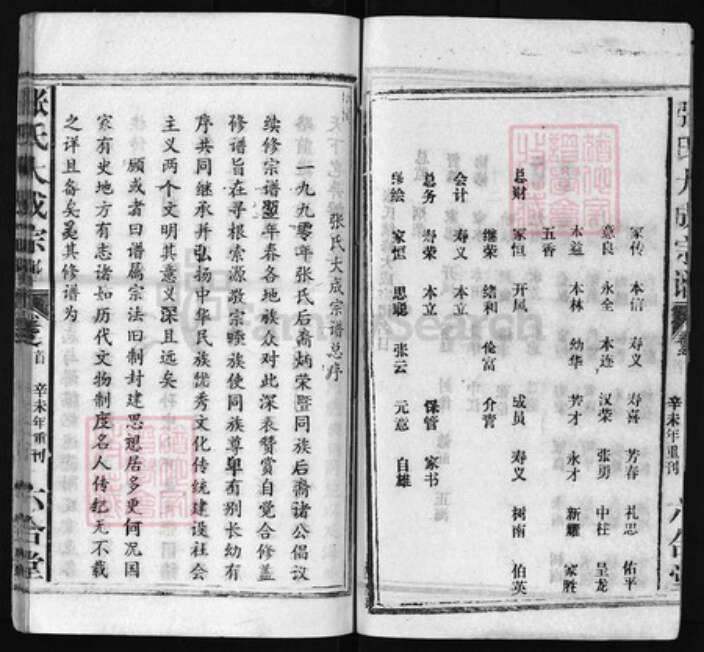 张氏大成宗谱
辛未年重刊
六合堂
家传 本信 寿义 寿喜 芳春 礼思 佑平
意良 永全 本连 汉荣 张勇 中柱 呈龙
本益 本林 幼华 芳才 永才 新耀 家胜
五香
总财 家恒 开风 成员 寿义 树南 伯英
继荣 绪和 伦富 介霄
会计 寿义 本立
总务 寿荣 本立 保管 家书
绘 家恒 思聪 张云 元意 自雄
张氏大成宗谱总序
一九九零年张氏后裔炳荣暨同族后裔诸公倡议
续修宗谱翌年春各地族众对此深表赞赏自觉合修盖
修谱旨在寻根索源敦宗睦族使同族尊卑有别长幼有
序共同继承并弘扬中华民族优秀文化传统建设社会
主义两个文明其意义深且远矣
顾或者曰谱属宗法旧制封建思想居多更何况国
家有史地方有志诸如历代文物制度名人传纪无不载
之详且备矣奚其修谱为
张氏大成宗谱
卷之首
辛未年重刊
六合堂
FamilySearch